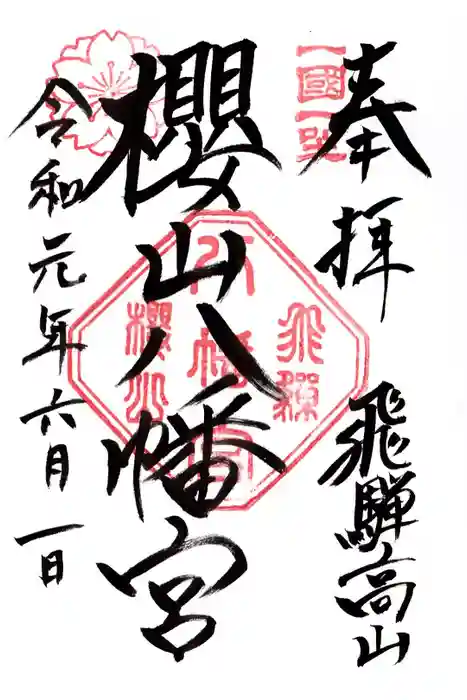 奉拝
飛騨高山
櫻山八幡宮
令和元年六月一日
一國一社
飛騨
八幡宮
櫻山